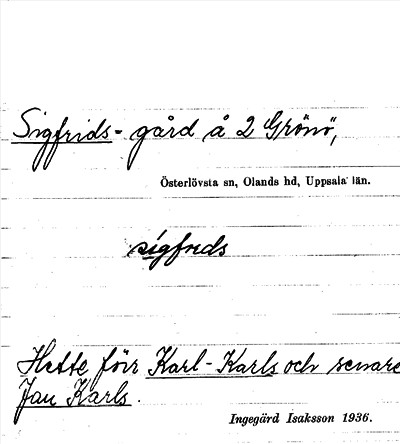 Sigfrids-gård å 2 Grönö,
Österlövsta sn, Olands hd, Uppsala län.
sigfreds
Hette förr Karl-Karls och senare
Jan Karls.
Ingegärd Isaksson 1936.